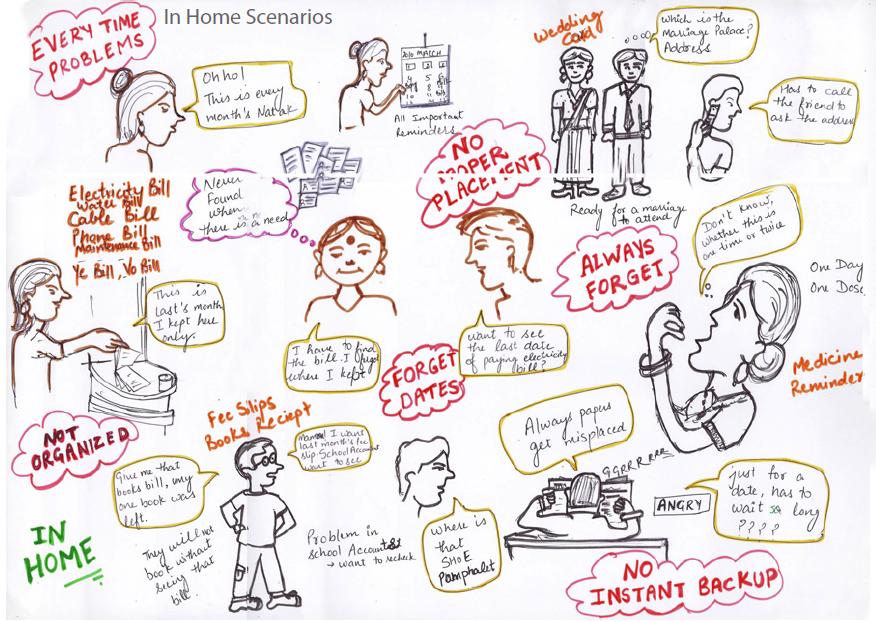 In Home Scenarios
EVERY TIME
PROBLEMS
Oh ho!
This is every
month's Natak
2010 MARCH
All Important
Reminders
Wedding
Card
Which is the
Marriage Palace?
Address
Has to call
the friend to
ask the address
Ready for a marriage
to attend
NO
PROPER
PLACEMENT
Never
Found
when
there is a need
Electricity Bill
Water Bill
Cable Bill
Phone Bill
Maintenance Bill
Ye Bill, Vo Bill
This is
last's month
I kept here
only.
I have to find
the bill. I forgot
where I kept
want to see
the last date
of paying electricity
bill?
ALWAYS
FORGET
Don't know,
whether this is
one time or twice
One Day
One Dose
Medicine
Reminder
FORGET
DATES
NOT
ORGANIZED
Fee Slips
Books Reciept
Give me that
books bill, my
one book was
left.
I want
last month's fee
slip. School Accountant
want to see
They will not
book without
seeing that
bill.
Problem in
school Accountst
→ want to recheck
Where is
that
SHOE
Pamphalet
Always papers
get misplaced
GGRRRRRR
ANGRY
just for a
date, has to
wait so long
????
IN
HOME
NO
INSTANT BACKUP